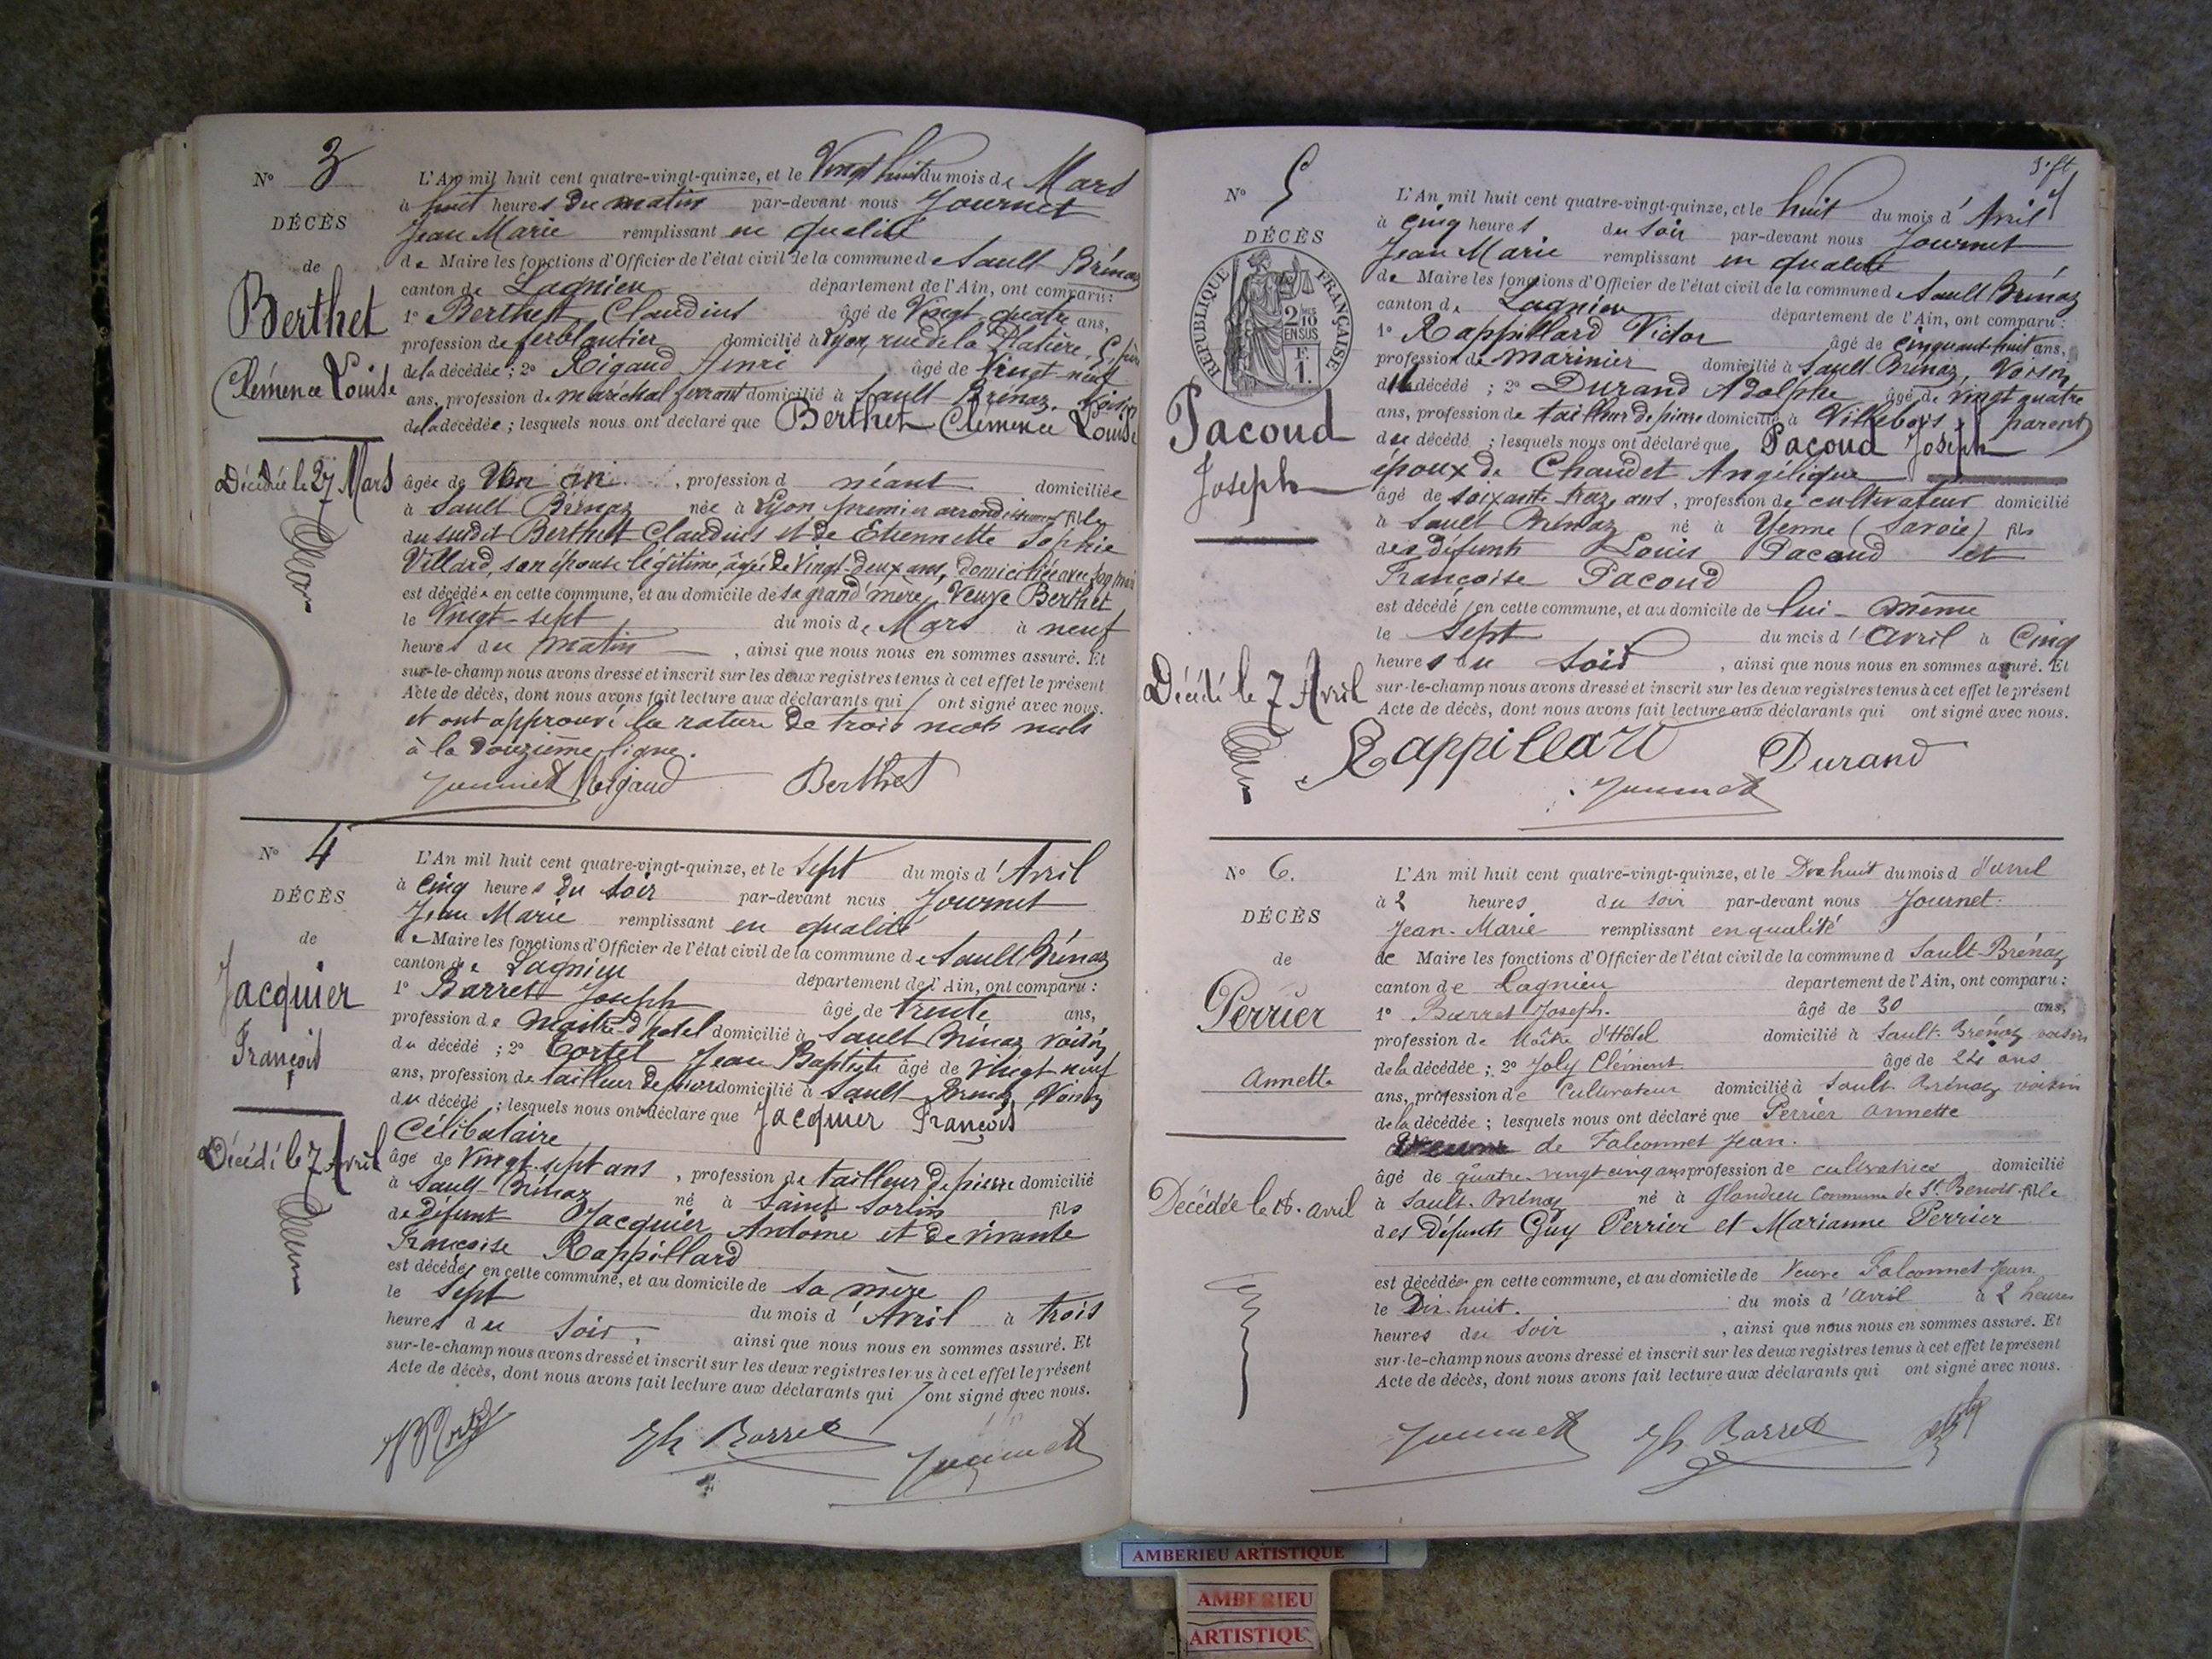 N° 3
DÉCÈS
de
Berthet
Clémence Louise
Décédée le 27 Mars
L'An mil huit cent quatre-vingt-quinze, et le Vingt huit du mois de Mars
à huit heures du matin par-devant nous Journet
Jean Marie remplissant en qualité
de Maire les fonctions d'Officier de l'état civil de la commune de Sault-Brénaz
canton de Lagnieu département de l'Ain, ont comparu :
1° Berthet Claudius âgé de Vingt-quatre ans,
profession de ferblantier domicilié à Lyon, rue de la Platière, 5, père
de la décédée ; 2° Rigaud Henri âgé de Vingt-neuf
ans, profession de maréchal ferrant domicilié à Sault-Brénaz, Voisin
de la décédée ; lesquels nous ont déclaré que Berthet Clémence Louise
âgée de un an , profession d néant domiciliée
à Sault Brénaz née à Lyon premier arrondissement fille
du susdit Berthet Claudius et de Etiennette Sophie
Villard, son épouse légitime, âgée de Vingt-deux ans, domiciliée avec son mari
est décédée en cette commune, et au domicile de sa grand'mère, Veuve Berthet
le Vingt-sept du mois de Mars à neuf
heures du matin , ainsi que nous nous en sommes assuré. Et
sur-le-champ nous avons dressé et inscrit sur les deux registres tenus à cet effet le présent
Acte de décès, dont nous avons fait lecture aux déclarants qui ont signé avec nous.
et ont approuvé la rature de trois mots nuls
à la douzième ligne.
Journet Rigaud Berthet
N° 4
DÉCÈS
de
Jacquier
François
Décédé le 7 Avril
L'An mil huit cent quatre-vingt-quinze, et le Sept du mois d'Avril
à cinq heures du soir par-devant nous Journet
Jean Marie remplissant en qualité
de Maire les fonctions d'Officier de l'état civil de la commune de Sault Brénaz
canton de Lagnieu département de l'Ain, ont comparu :
1° Barret Joseph âgé de trente ans,
profession de Maitre d'hotel domicilié à Sault Brénaz voisin
du décédé ; 2° Tortel Jean Baptiste âgé de vingt neuf
ans, profession de tailleur de pierre domicilié à Sault-Brénaz Voisin
du décédé ; lesquels nous ont déclaré que Jacquier François
Célibataire
âgé de Vingt-sept ans , profession de tailleur de pierre domicilié
à Sault-Brénaz né à Saint Sorlin fils
de défunt Jacquier Antoine et de vivante
Françoise Rappillard
est décédé en cette commune, et au domicile de sa mère
le Sept du mois d'Avril à trois
heures du soir, ainsi que nous nous en sommes assuré. Et
sur-le-champ nous avons dressé et inscrit sur les deux registres tenus à cet effet le présent
Acte de décès, dont nous avons fait lecture aux déclarants qui ont signé avec nous.
Jh Barret Journet
N° 5
DÉCÈS
RÉPUBLIQUE FRANÇAISE
2/10 EN SUS
1 F.
Pacoud
Joseph
Décédé le 7 Avril
L'An mil huit cent quatre-vingt-quinze, et le huit du mois d'Avril
à cinq heures du soir par-devant nous Journet
Jean Marie remplissant en qualité
de Maire les fonctions d'Officier de l'état civil de la commune de Sault Brénaz
canton de Lagnieu département de l'Ain, ont comparu :
1° Rappillard Victor âgé de cinquante huit ans,
profession de marinier domicilié à Sault Brénaz, Voisin
du décédé ; 2° Durand Adolphe âgé de vingt quatre
ans, profession de tailleur de pierre domicilié à Villebois, parent
du décédé ; lesquels nous ont déclaré que Pacoud Joseph
époux de Chaudet Angélique
âgé de soixante treize ans , profession de cultivateur domicilié
à Sault Brénaz né à Yenne (Savoie) fils
des défunts Louis Pacoud et
Françoise Pacoud
est décédé en cette commune, et au domicile de lui-même
le Sept du mois d'Avril à Cinq
heures du soir , ainsi que nous nous en sommes assuré. Et
sur-le-champ nous avons dressé et inscrit sur les deux registres tenus à cet effet le présent
Acte de décès, dont nous avons fait lecture aux déclarants qui ont signé avec nous.
Rappillard Durand
Journet
N° 6.
DÉCÈS
de
Perrier
Annette
Décédée le 18. avril
L'An mil huit cent quatre-vingt-quinze, et le Dix huit du mois d d'avril
à 2 heures du soir par-devant nous Journet.
Jean-Marie remplissant en qualité
de Maire les fonctions d'Officier de l'état civil de la commune d Sault-Brénaz
canton de Lagnieu département de l'Ain, ont comparu :
1° Barret Joseph. âgé de 30 ans,
profession de Maître d'Hôtel domicilié à Sault-Brénaz voisin
de la décédée ; 2° Joly Clément âgé de 24 ans
ans, profession de Cultivateur domicilié à Sault Brénaz voisin
de la décédée ; lesquels nous ont déclaré que Perrier annette
de Falconnet Jean.
âgé de quatre-vingt cinq ans profession de cultivatrice domicilié
à Sault-Brénaz né à Glandieu Commune de St. Benoit fille
des défunts Guy Perrier et Marianne Perrier
est décédée en cette commune, et au domicile de Veuve Falconnet Jean
le Dix-huit. du mois d'avril à 2 heures
heures du soir , ainsi que nous nous en sommes assuré. Et
sur-le-champ nous avons dressé et inscrit sur les deux registres tenus à cet effet le présent
Acte de décès, dont nous avons fait lecture aux déclarants qui ont signé avec nous.
Journet Jh Barret
AMBERIEU ARTISTIQUE
AMBERIEU
ARTISTIQU